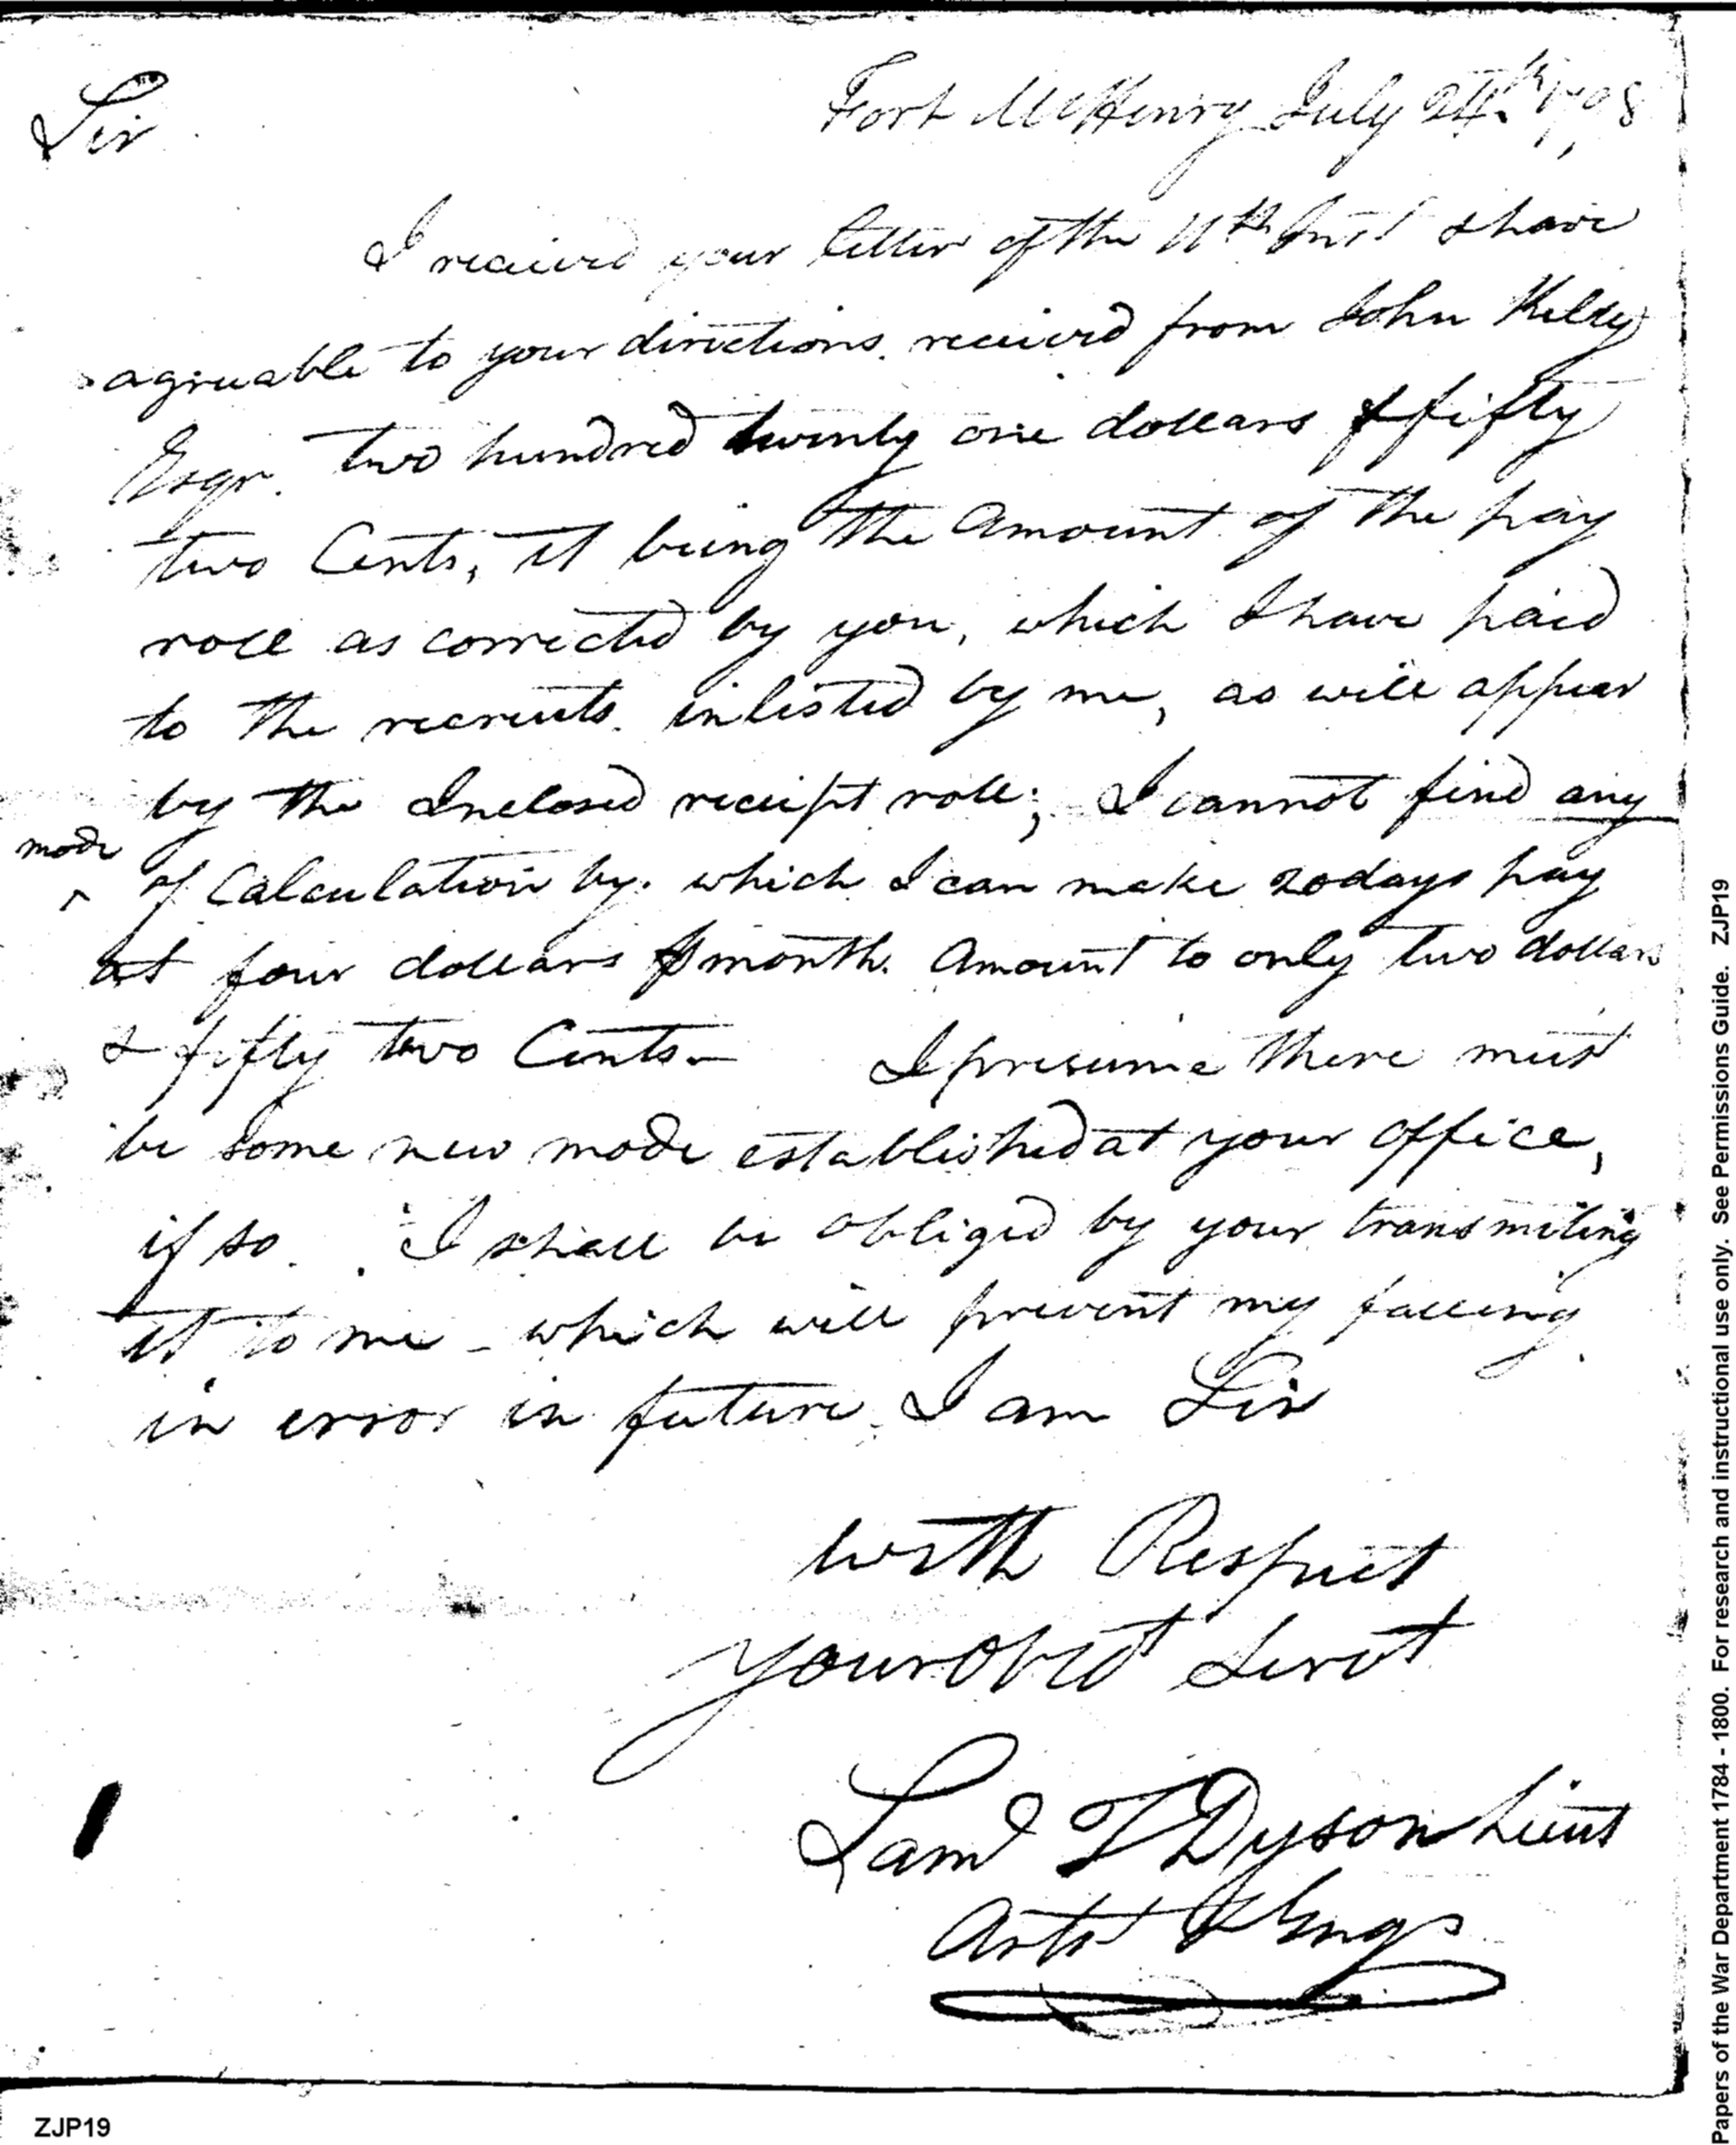 Fort McHenry July 24th 1798
Sir
I received your letter of the 11th Inst & have
agreeable to your directions received from John Kelty
Esqr. two hundred twenty one dollars & fifty
two Cents, it being the Amount of the pay
role as corrected by you, which I have paid
to the recruits inlisted by me, as will appear
by the Inclosed receipt role; I cannot find any
mode
^ of Calculation by which I can make 20 days pay
at four dollars P month Amount to only two dollars
& fifty two Cents— I presume there must
be some new mode established at your office,
if so. I shall be obliged by your transmiting
it to me - which will prevent my falling
in error in future. I am Sir
with Respect
your Obedt Servt
Saml T Dyson Lieut
Arts & Engs
ZJP19
Papers of the War Department 1784 - 1800. For research and instructional use only. See Permissions Guide. ZJP19